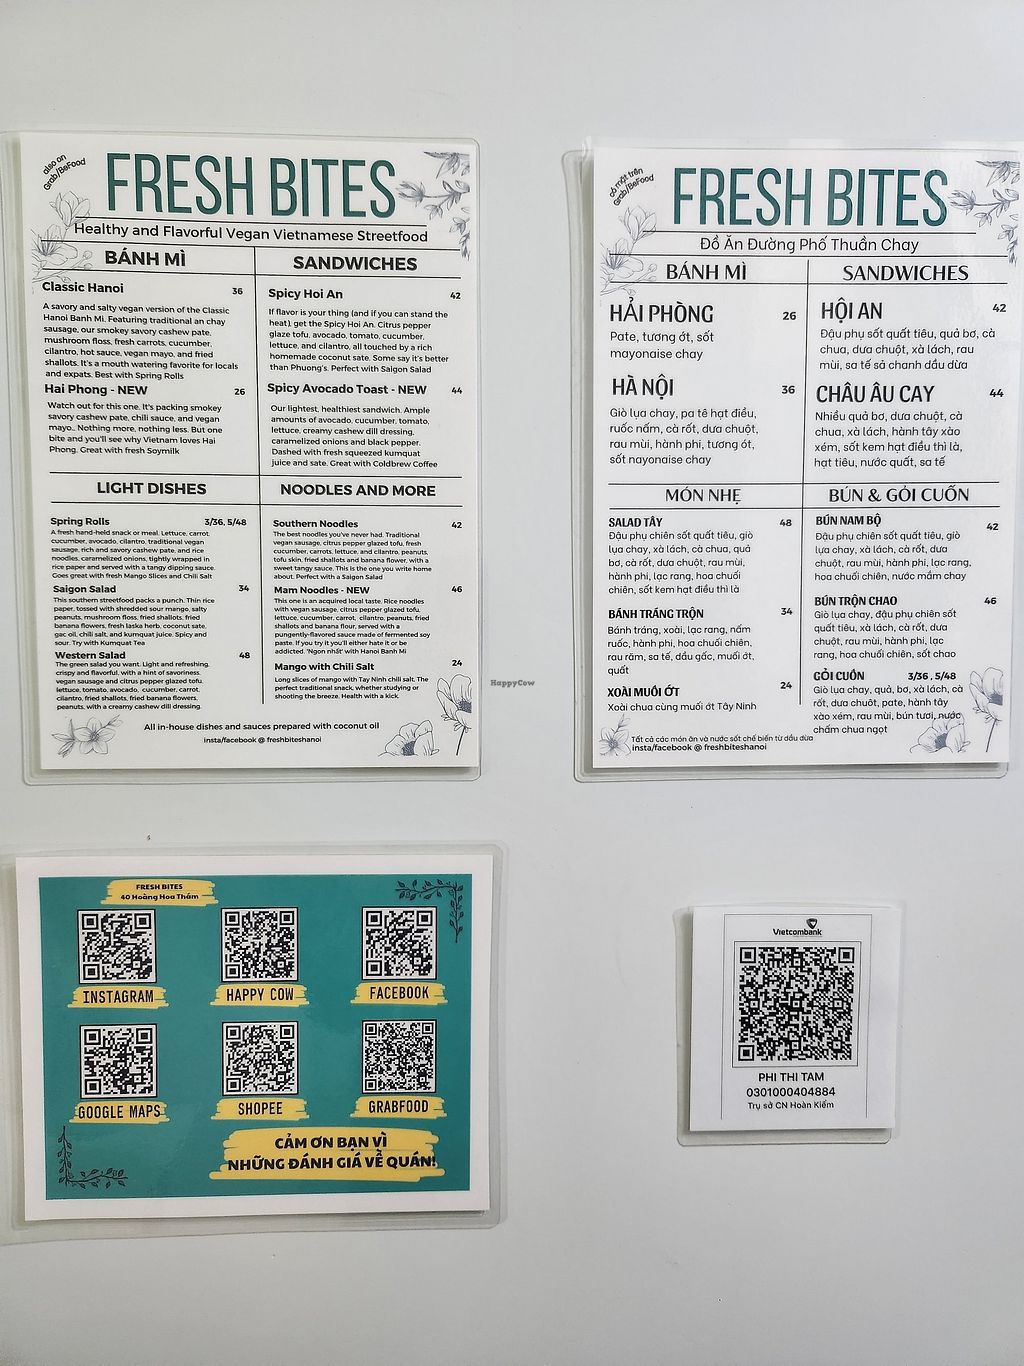 also on
Grab/BeFood
FRESH BITES
Healthy and Flavorful Vegan Vietnamese Streetfood
BÁNH MÌ
Classic Hanoi 36
A savory and salty vegan version of the Classic
Hanoi Banh Mi. Featuring traditional an chay
sausage, our smokey savory cashew pate,
mushroom floss, fresh carrots, cucumber,
cilantro, hot sauce, vegan mayo, and fried
shallots. It's a mouth watering favorite for locals
and expats. Best with Spring Rolls
Hai Phong - NEW 26
Watch out for this one. It's packing smokey
savory cashew pate, chili sauce, and vegan
mayo.. Nothing more, nothing less. But one
bite and you'll see why Vietnam loves Hai
Phong. Great with fresh Soymilk
SANDWICHES
Spicy Hoi An 42
If flavor is your thing (and if you can stand the
heat), get the Spicy Hoi An. Citrus pepper
glaze tofu, avocado, tomato, cucumber,
lettuce, and cilantro, all touched by a rich
homemade coconut sate. Some say it's better
than Phuong's. Perfect with Saigon Salad
Spicy Avocado Toast - NEW 44
Our lightest, healthiest sandwich. Ample
amounts of avocado, cucumber, tomato,
lettuce, creamy cashew dill dressing,
caramelized onions and black pepper.
Dashed with fresh squeezed kumquat
juice and sate. Great with Coldbrew Coffee
LIGHT DISHES
Spring Rolls 3/36, 5/48
A fresh hand-held snack or meal. Lettuce, carrot,
cucumber, avocado, cilantro, traditional vegan
sausage, rich and savory cashew pate, and rice
noodles, caramelized onions, tightly wrapped in
rice paper and served with a tangy dipping sauce.
Goes great with fresh Mango Slices and Chili Salt
Saigon Salad 34
This southern streetfood packs a punch. Thin rice
paper, tossed with shredded sour mango, salty
peanuts, mushroom floss, fried shallots, fried
banana flowers, fresh laska herb, coconut sate,
gac oil, chili salt, and kumquat juice. Spicy and
sour. Try with Kumquat Tea
Western Salad 48
The green salad you want. Light and refreshing,
crispy and flavorful, with a hint of savoriness.
vegan sausage and citrus pepper glazed tofu.
lettuce, tomato, avocado, cucumber, carrot,
cilantro, shallots, fried banana flowers,
peanuts, with a creamy cashew dill dressing.
NOODLES AND MORE
Southern Noodles 42
The best noodles you've never had. Traditional
vegan sausage, citrus pepper glazed tofu, fresh
cucumber, carrots, lettuce, and cilantro, peanuts,
tofu skin, fried shallots and banana flower, with a
sweet tangy sauce. This is the one you write home
about. Perfect with a Saigon Salad
Mam Noodles - NEW 46
This one is an acquired local taste. Rice noodles
with vegan sausage, citrus pepper glazed tofu,
lettuce, cucumber, carrot, cilantro, peanuts, fried
shallots and banana flour, served with a
pungently-flavored sauce made of fermented soy
paste. If you try it you'll either hate it or be
addicted. 'Ngon nhất' with Hanoi Banh Mi
Mango with Chili Salt 24
Long slices of mango with Tay Ninh chili salt. The
perfect traditional snack, whether studying or
shooting the breeze. Health with a kick.
All in-house dishes and sauces prepared with coconut oil
insta/facebook @ freshbiteshanoi
có mặt trên
Grab/BeFood
FRESH BITES
Đồ Ăn Đường Phố Thuần Chay
BÁNH MÌ
HẢI PHÒNG 26
Pate, tương ớt, sốt
mayonaise chay
HÀ NỘI 36
Giò lụa chay, pa tê hạt điều,
ruốc nấm, cà rốt, dưa chuột,
rau mùi, hành phi, tương ót,
sốt nayonaise chay
SANDWICHES
HỘI AN 42
Đậu phụ sốt quất tiêu, quả bơ, cà
chua, dưa chuột, xà lách, rau
mùi, sa tế sả chanh dầu dừa
CHÂU ÂU CAY 44
Nhiều quả bơ, dưa chuột, cà
chua, xà lách, hành tây xào
xém, sốt kem hạt điều thì là,
hạt tiêu, nước quất, sa tế
MÓN NHẸ
SALAD TÂY 48
Đậu phụ chiên sốt quất tiêu, giò
lụa chay, xà lách, cà chua, quả
bơ, cà rốt, dưa chuột, rau mùi,
hành phi, lạc rang, hoa chuối
chiên, sốt kem hạt điều thì là
BÁNH TRÁNG TRỘN 34
Bánh tráng, xoài, lạc rang, nấm
ruốc, hành phi, hoa chuối chiên,
rau răm, sa tế, dầu gấc, muối ớt,
quất
XOÀI MUỐI ỚT 24
Xoài chua cùng muối ớt Tây Ninh
BÚN & GỎI CUỐN
BÚN NAM BỘ 42
Đậu phụ chiên sốt quất tiêu, giò
lụa chay, xà lách, cà rốt, dưa
chuột, rau mùi, hành phi, lạc rang,
hoa chuối chiên, nước mắm chay
BÚN TRỘN CHAO 46
Giò lụa chay, đậu phụ chiên sốt
quất tiêu, xà lách, cà rốt, dưa
chuột, rau mùi, hành phi, lạc
rang, hoa chuối chiên, sốt chao
GỎI CUỐN 3/36 , 5/48
Giò lụa chay, quả, bơ, xà lách, cà
rốt, dưa chuột, pate, hành tây
xào xém, rau mùi, bún tươi, nước
chấm chua ngọt
Tất cả các món ăn và nước sốt chế biến từ dầu dừa
insta/facebook @ freshbiteshanoi
HappyCow
FRESH BITES
40 Hoàng Hoa Thám
INSTAGRAM HAPPY COW FACEBOOK
GOOGLE MAPS SHOPEE GRABFOOD
CẢM ƠN BẠN VÌ
NHỮNG ĐÁNH GIÁ VỀ QUÁN!
Vietcombank
PHI THI TAM
0301000404884
Trụ sở CN Hoàn Kiếm